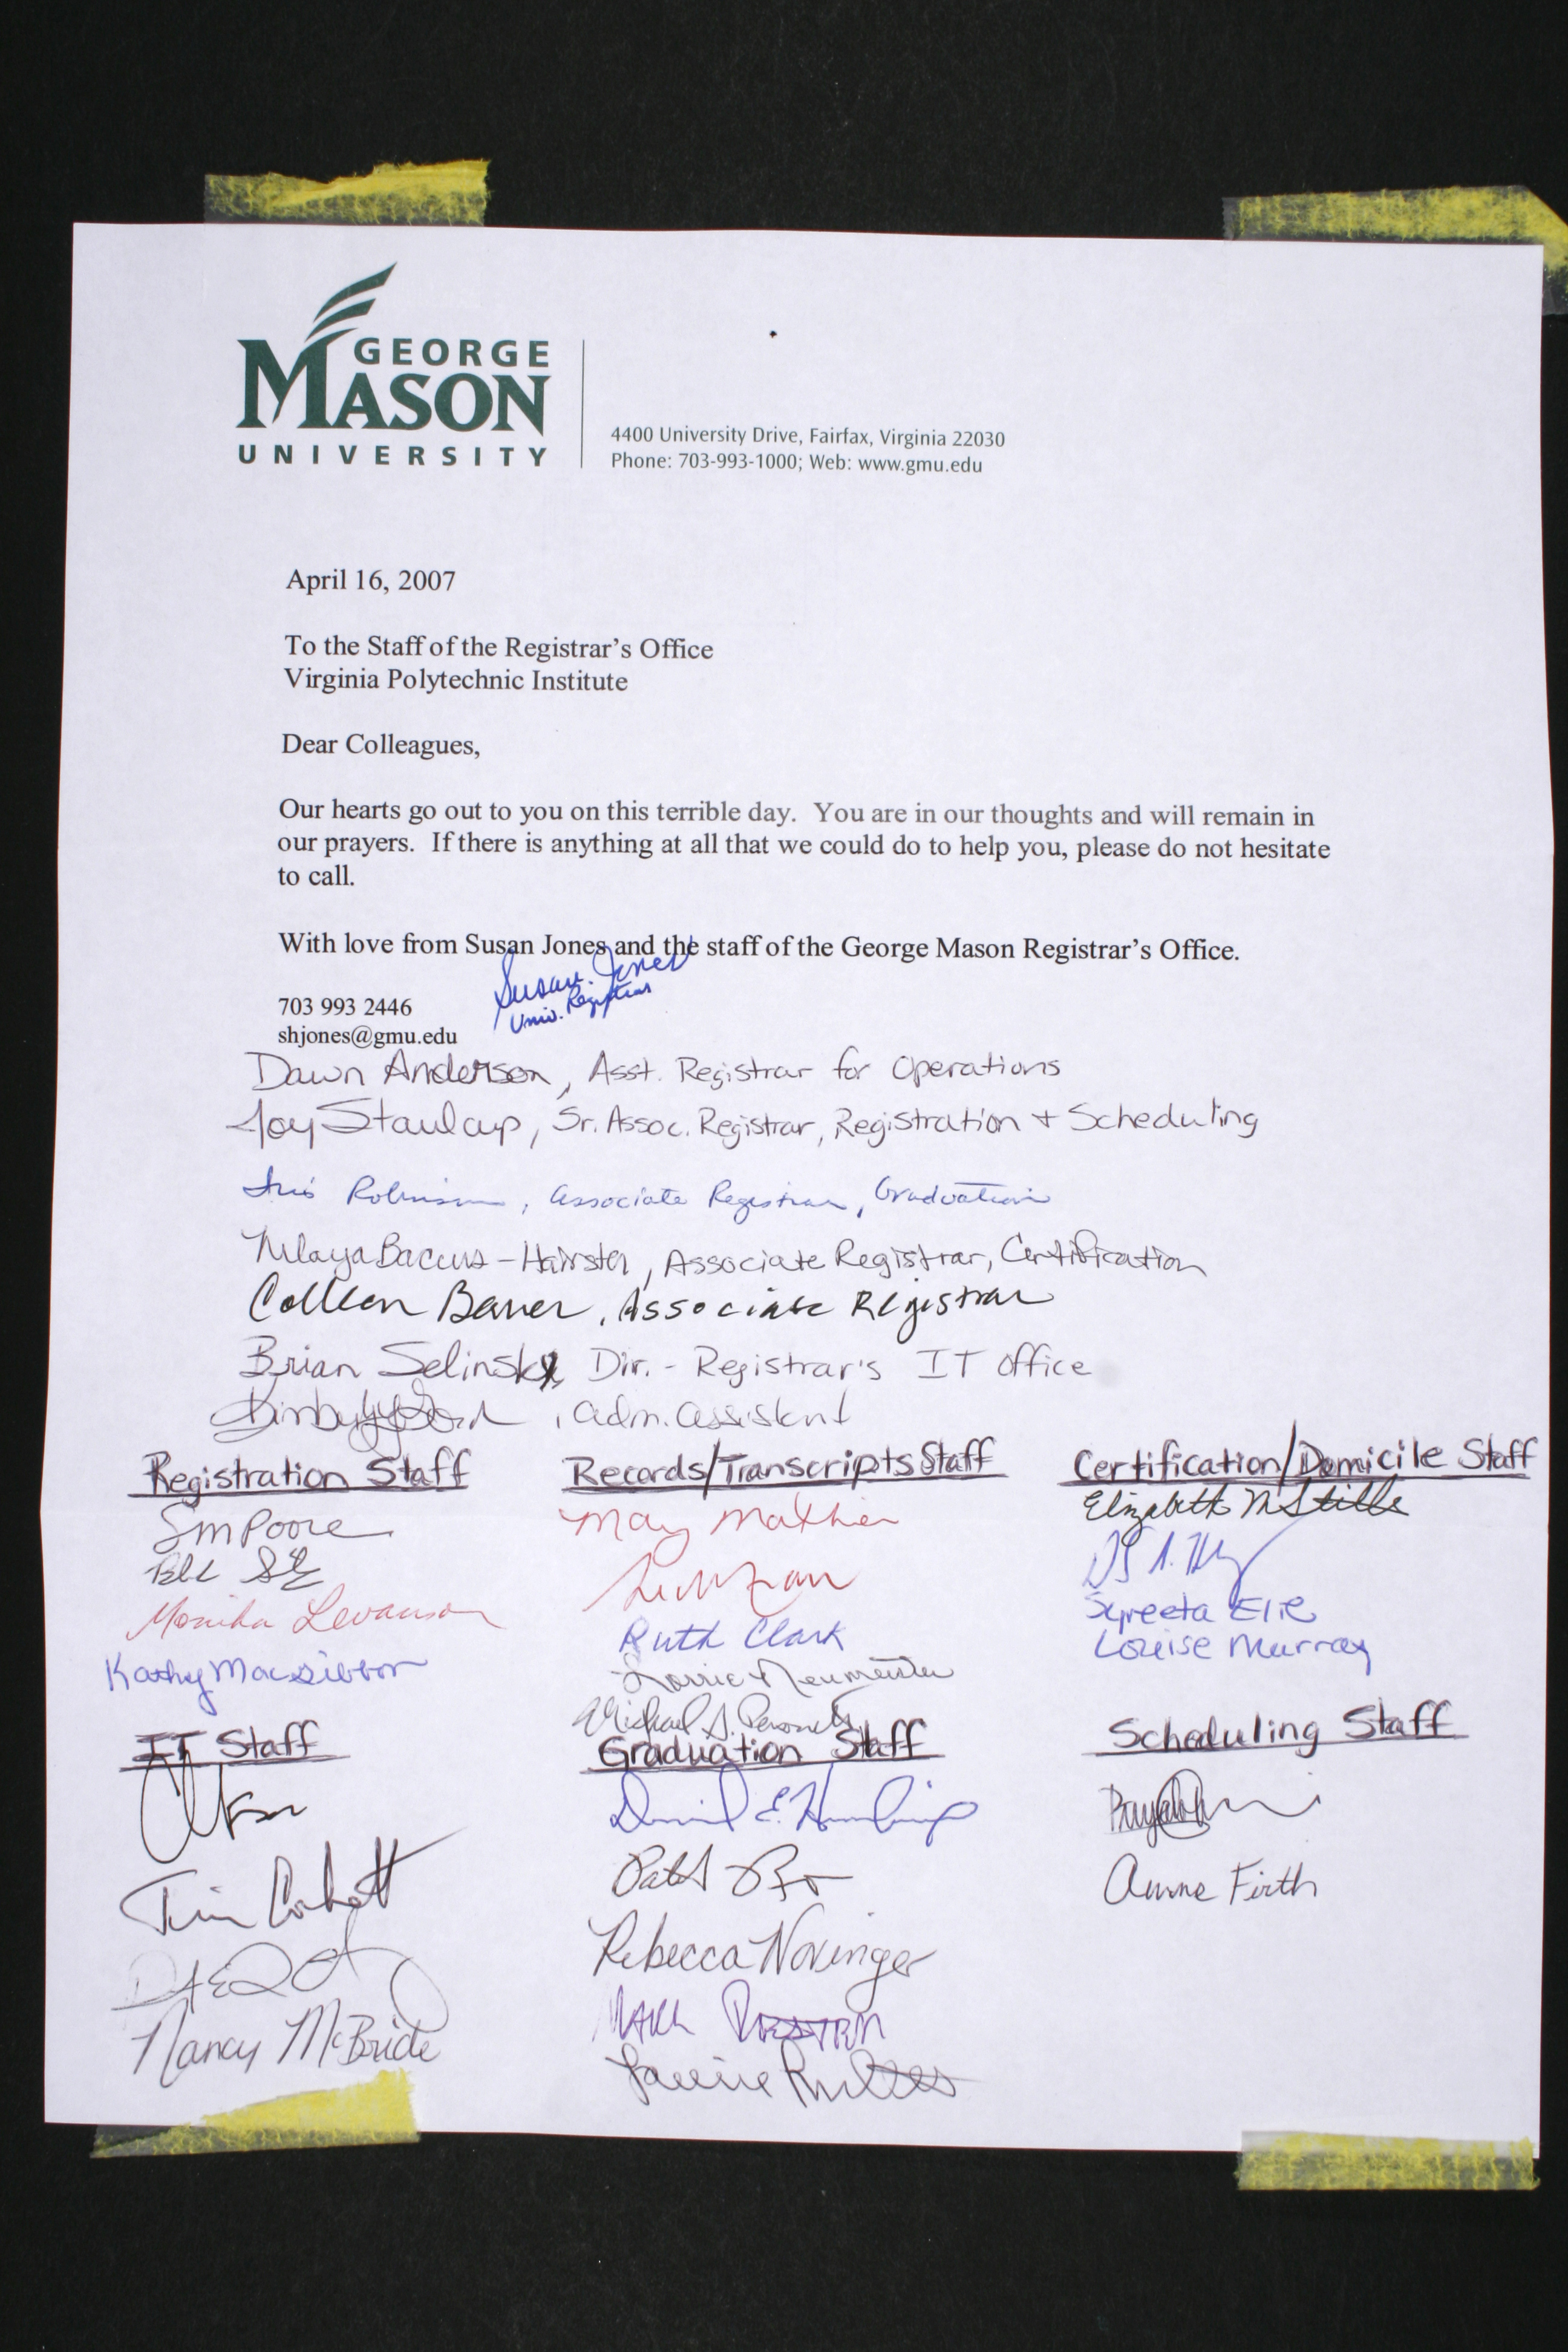 GEORGE
MASON
UNIVERSITY
4400 University Drive, Fairfax, Virginia 22030
Phone: 703-993-1000; Web: www.gmu.edu
April 16, 2007
To the Staff of the Registrar's Office
Virginia Polytechnic Institute
Dear Colleagues,
Our hearts go out to you on this terrible day. You are in our thoughts and will remain in
our prayers. If there is anything at all that we could do to help you, please do not hesitate
to call.
With love from Susan Jones and the staff of the George Mason Registrar's Office.
Susan Jones
Univ. Registrar
703 993 2446
shjones@gmu.edu
Dawn Anderson, Asst. Registrar for Operations
Joy Staulcup, Sr. Assoc. Registrar, Registration + Scheduling
Iris Robinson, Associate Registrar, Graduation
Baccus-Hairston, Associate Registrar, Certification
Colleen, Associate Registrar
Brian Selinsky, Dir. - Registrar's IT office
, adm. assistant
Registration Staff
SM Poore
Monika Levanson
Kathy MacGibbon
Records/Transcripts Staff
May
Ruth Clark
Lorrie Neumeister
Michael S.
Certification/Domicile Staff
Elizabeth M Stille
Syreeta Elie
Louise Murray
IT Staff
Tim Corbett
Nancy McBride
Graduation Staff
David E.
Rebecca Novinger
Mark
Scheduling Staff
Anne Firth